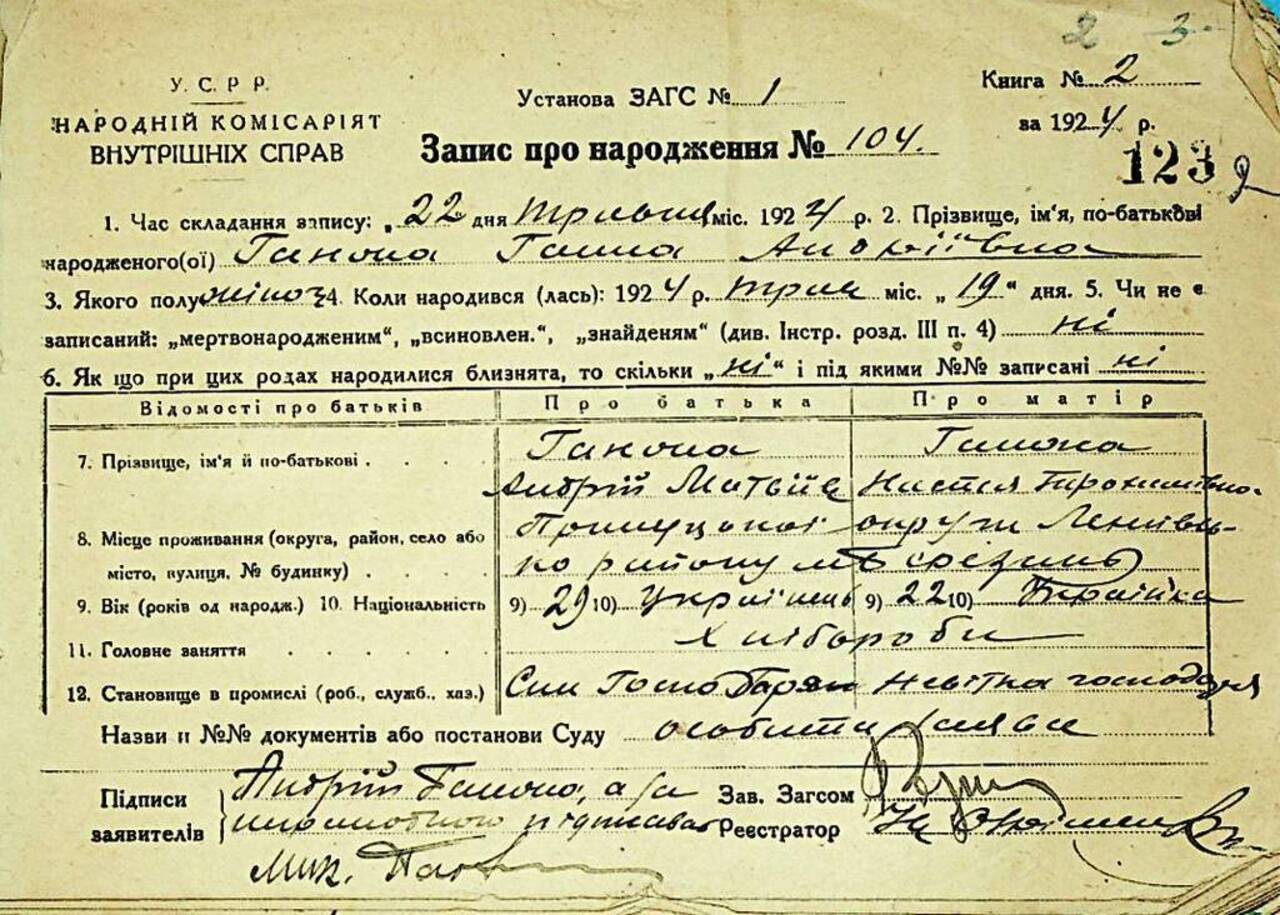 2 3
У. С. Р Р.
НАРОДНІЙ КОМІСАРІЯТ
ВНУТРІШНІХ СПРАВ
Установа ЗАГС № 1
Книга № 2
за 1924 р.
Запис про народження № 104.
123
1. Час складання запису: „22 дня міс. 1924 р. 2. Прізвище, ім'я, по-батькові
народженого(ої) Ганна Андріївна
3. Якого полу жіноч 4. Коли народився (лась): 1924 р. міс. „19“ дня. 5. Чи не є
записаний: „мертвонародженим“, „всиновлен.“, „знайденям“ (див. Інстр. розд. III п. 4) ні
6. Як що при цих родах народилися близнята, то скільки „ні“ і під якими №№ записані ні
Відомості про батьків Про батька Про матір
7. Прізвище, ім'я й по-батькові
Андрій Матвіїв Настя Трохимівна
8. Місце проживання (округа, район, село або Прилуцької округи
місто, вулиця, № будинку) району
9. Вік (років од народж.) 10. Національність 9) 29 10) Українець 9) 22 10) Українка
11. Головне заняття Хлібороби
12. Становище в промислі (роб., служб., хаз.) Син Господаря Невітка господаря
Назви и №№ документів або постанови Суду особисти заяви
Підписи
заявителів
Андрій а за
неграмотного підписав
Мик.
Зав. Загсом
Реєстратор